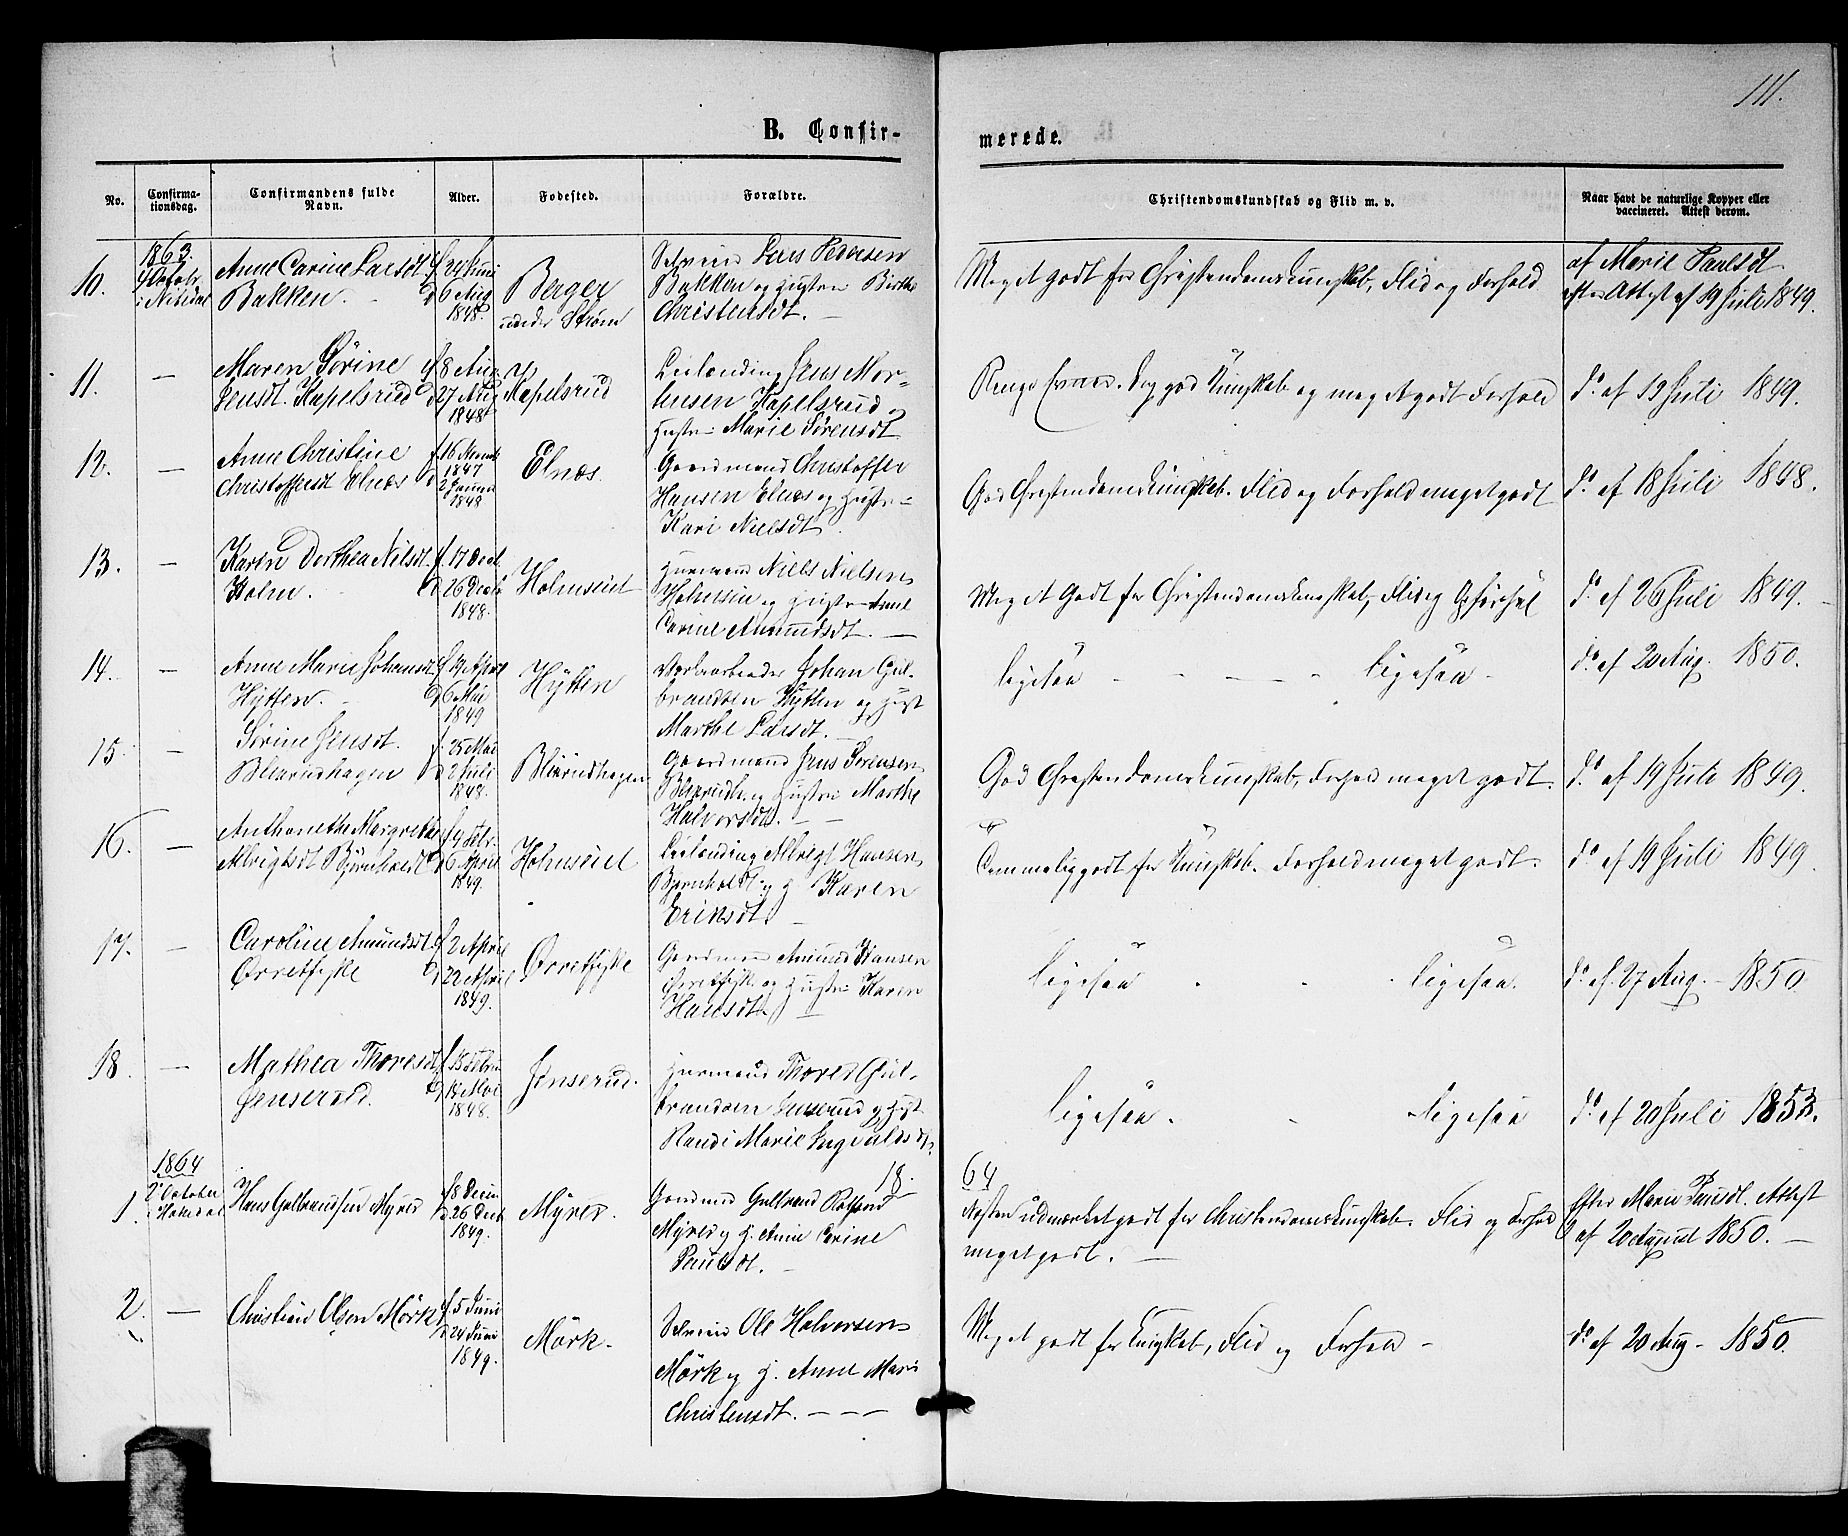 111.
B. Confir-
merede.
No.
Confirma-
tionsdag.
Confirmandens fulde
Navn.
Alder.
Fødested.
Forældre.
Christendomskundskab og Flid m. v.
Naar havt de naturlige Kopper eller
vaccineret. Attest derom.
1863.
10.
4 Octobr.
i Nitedal
Anne Carine Larsdt
Bakken.
f. 24 Juni
d 6 Aug
1848.
Berger
under Strøm
Lars Pedersen
Bakken og Hustru Birthe
Christensdt.
Meget godt for Christendomskunskab, Flid og Forhold
af Marie Paulsdt
efter Attest af 19 Juli 1849.
11. —
Maren Sørine
Jensdt. Kapelsrud
f 8 Aug
d 27 Aug
1848
Kapelsrud
Leilænding Jens Mor-
tensen Kapelsrud og
Hustru Marie Sørensdt
god Kunskab og meget godt Forhold
do af 19 Juli 1849.
12. —
Anne Christine
Christoffersdt Elnæs
f. 16 Novemb
1847
d 2 Januar
1848
Elnæs.
Gaardmand Christoffer
Hansen Elnæs og Hustru
Kari Nielsdt.
God Christendomskunskab. Flid og Forhold meget godt
do af 18 Juli 1848.
13. —
Karen Dorthea Nilsdt.
Holm.
f. 17 Decb.
d 26 Decb
1848.
Holmseiet
Huusmand Niels Nielsen
Holmseie og Hustru Anne
Carine Amundsdt. —
Meget Godt for Christendomskunskab, Flid og Forhol
do af 26 Juli 1849.
14. —
Anne Marie Johansdt
Hytten.
f 19 April
d 6 Mai
1849
Hytten
Johan Gul-
brandsen Hytten og Hust
Marthe Larsdt.
ligesaa — — — ligesaa
do af 20 Aug. 1850.
15. —
Sørine Jensdt.
Bleirudhagen
f. 25 Mai
d 2 Juli
1848.
Bleirudhagen
Gaardmand Jens Sørensen
Bleirudh. og Hustru Marthe
Halvorsdt. —
God Christendomskunskab, Forhold meget godt.
do af 19 Juli 1849.
16. —
Anthonette Margrethe
Alvrigtsdt Bjørnholdt
f 4 Febr.
d 6 April
1849.
Holmseiet
Leilænding Alvrigt Hansen
Bjørnholdt og H Karen
Eriksdt.
Temmelig godt for Kunskab. Forhold meget godt.
do af 19 Juli 1849
17. —
Caroline Amundsdt.
Ørretfiske
f 2 April
d 22 April
1849.
Ørretfiske
Gaardmand Amund Hansen
Ørretfisk. og Hustru Karen
Hansdt. —
ligesaa - - ligesaa.
do af. 27 Aug. - 1850.
18. —
Mathea Thoresdt
Jenserud.
f 15 Febru
d 18 Mai
1848.
Jenserud.
Huusmand Thores Gul-
brandsen Jenserud og Hust
Randi Marie Ingvaldsdt.
ligesaa. - - ligesaa
do af 20 Juli 1853.
1864
18.
64
1.
2 October
i Hakedal
Hans Gulbrandsen Myrer
f 8 Decem
d. 26 Decb
1849.
Myrer.
Gaardmd Gulbrand
Myrer og H. Anne Carine
Paulsdt. —
Næsten udmærket godt for Christendomskunskab. Flid og Forhold
meget godt. —
Efter Marie Paulsdt. Attest
af 20 August 1850. —
2. —
Christian Olsen Mörk
f. 5 Juni
d 24 Juni
1849.
Mörk.
Ole Halvorsen
Mörk og H. Anne Marie
Christensdt. — — —
Meget godt for Kunskab, Flid og Forhold —
do af 20 Aug - 1850.